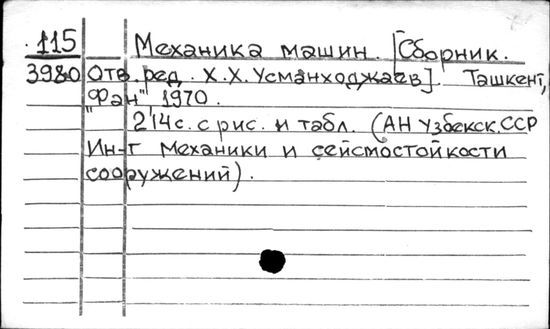 115 Механика машин. [Сборник.
3980 Отв. ред. Х.Х. Усманходжаев]. Ташкент,
"Фан", 1970.
214 с. с рис. и табл. (АН Узбекск. ССР
Ин-т механики и сейсмостойкости
сооружений).